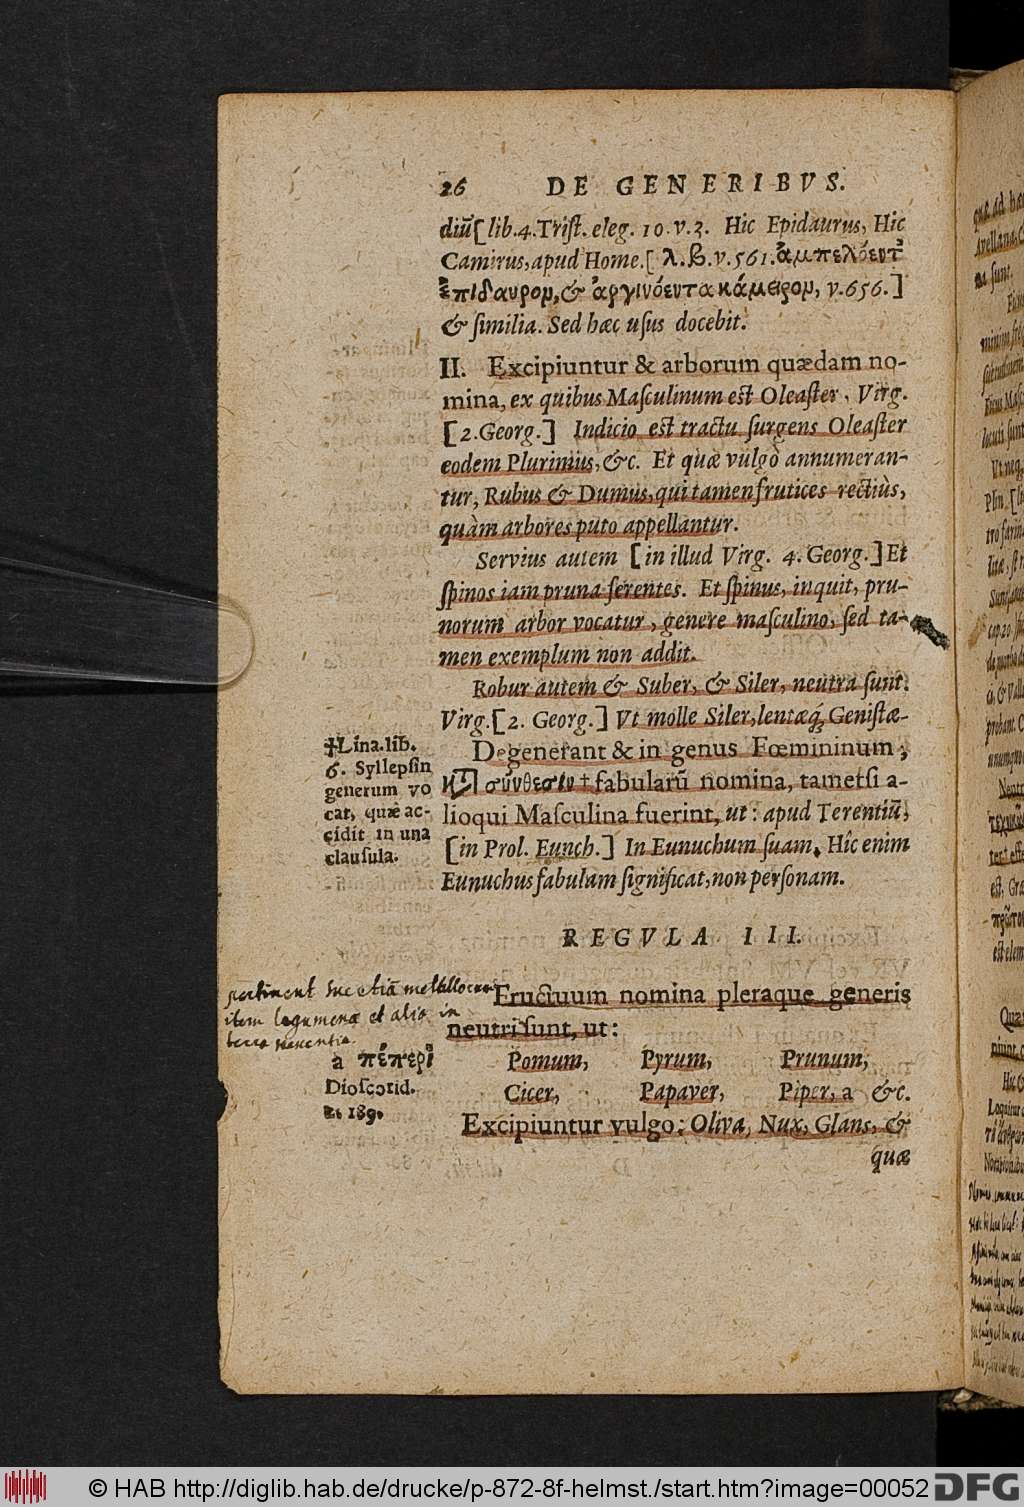 26 DE GENERIBVS.
diũ[lib.4.Trist. eleg. 10.v.3. Hic Epidaurus, Hic
Camirus, apud Home.[λ.β.v.561.ἀμπελόεντ᾽
ἐπίδαυρον, & ἀργινόεντα κάμειρον, v.656.]
& similia. Sed hæc usus docebit.
II. Excipiuntur & arborum quædam no-
mina, ex quibus Masculinum est Oleaster, Virg.
[2.Georg.] Indicio est tractu surgens Oleaster
eodem Plurimus, &c. Et quæ vulgò annumeran-
tur, Rubus & Dumus, qui tamen frutices rectiùs,
quàm arbores puto appellantur.
Servius autem [in illud Virg. 4. Georg.] Et
spinos iam pruna ferentes. Et spinus, inquit, pru-
norum arbor vocatur, genere masculino, sed ta-
men exemplum non addit.
Robur autem & Suber, & Siler, neutra sunt.
Virg.[2. Georg.] Vt molle Siler, lentæq́; Genistæ-
Degenerant & in genus Fœmininum,
κỳ σύνθεσιν † fabularũ nomina, tametsi a-
lioqui Masculina fuerint, ut: apud Terentiũ,
[in Prol. Eunch.] In Eunuchum suam. Hîc enim
Eunuchus fabulam significat, non personam.
†Lina.lib.
6. Syllepsin
generum vo
cat, quæ ac-
cidit in una
clausula.
REGVLA III.
Fructuum nomina pleraque generis
neutri sunt, ut:
Pomum, Pyrum, Prunum,
Cicer, Papaver, Piper, a &c.
Excipiuntur vulgo: Oliva, Nux, Glans, &
quæ
pertinent huc etiã metallorum
item legumena et alia in
terra
a πέπερι
Dioscorid.
2. 189.
© HAB http://diglib.hab.de/drucke/p-872-8f-helmst./start.htm?image=00052 DFG